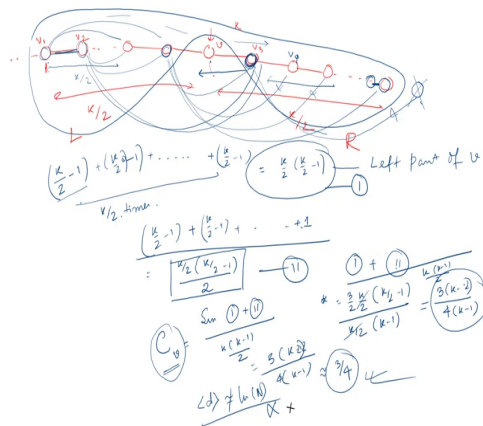 v₁ v₂ v v₃ v₄
k/2
k/2 k/2
L R
(k/2 - 1) + (k/2 - 1) + ...... + (k/2 - 1) = k/2 (k/2 - 1) Left part of v
k/2 times. I
(k/2 - 1) + (k/2 - 1) + . . - +1
= k/2 (k/2 - 1) / 2 — II
I + II
= 3/2 k/2 (k/2 - 1) / k/2 (k-1) = 3(k-2) / 4(k-1)
k(k-1)/2
C_v = Sum I + II / k(k-1)/2
= 3(k-2) / 4(k-1) ≈ 3/4
<d> ≠ ln(N)